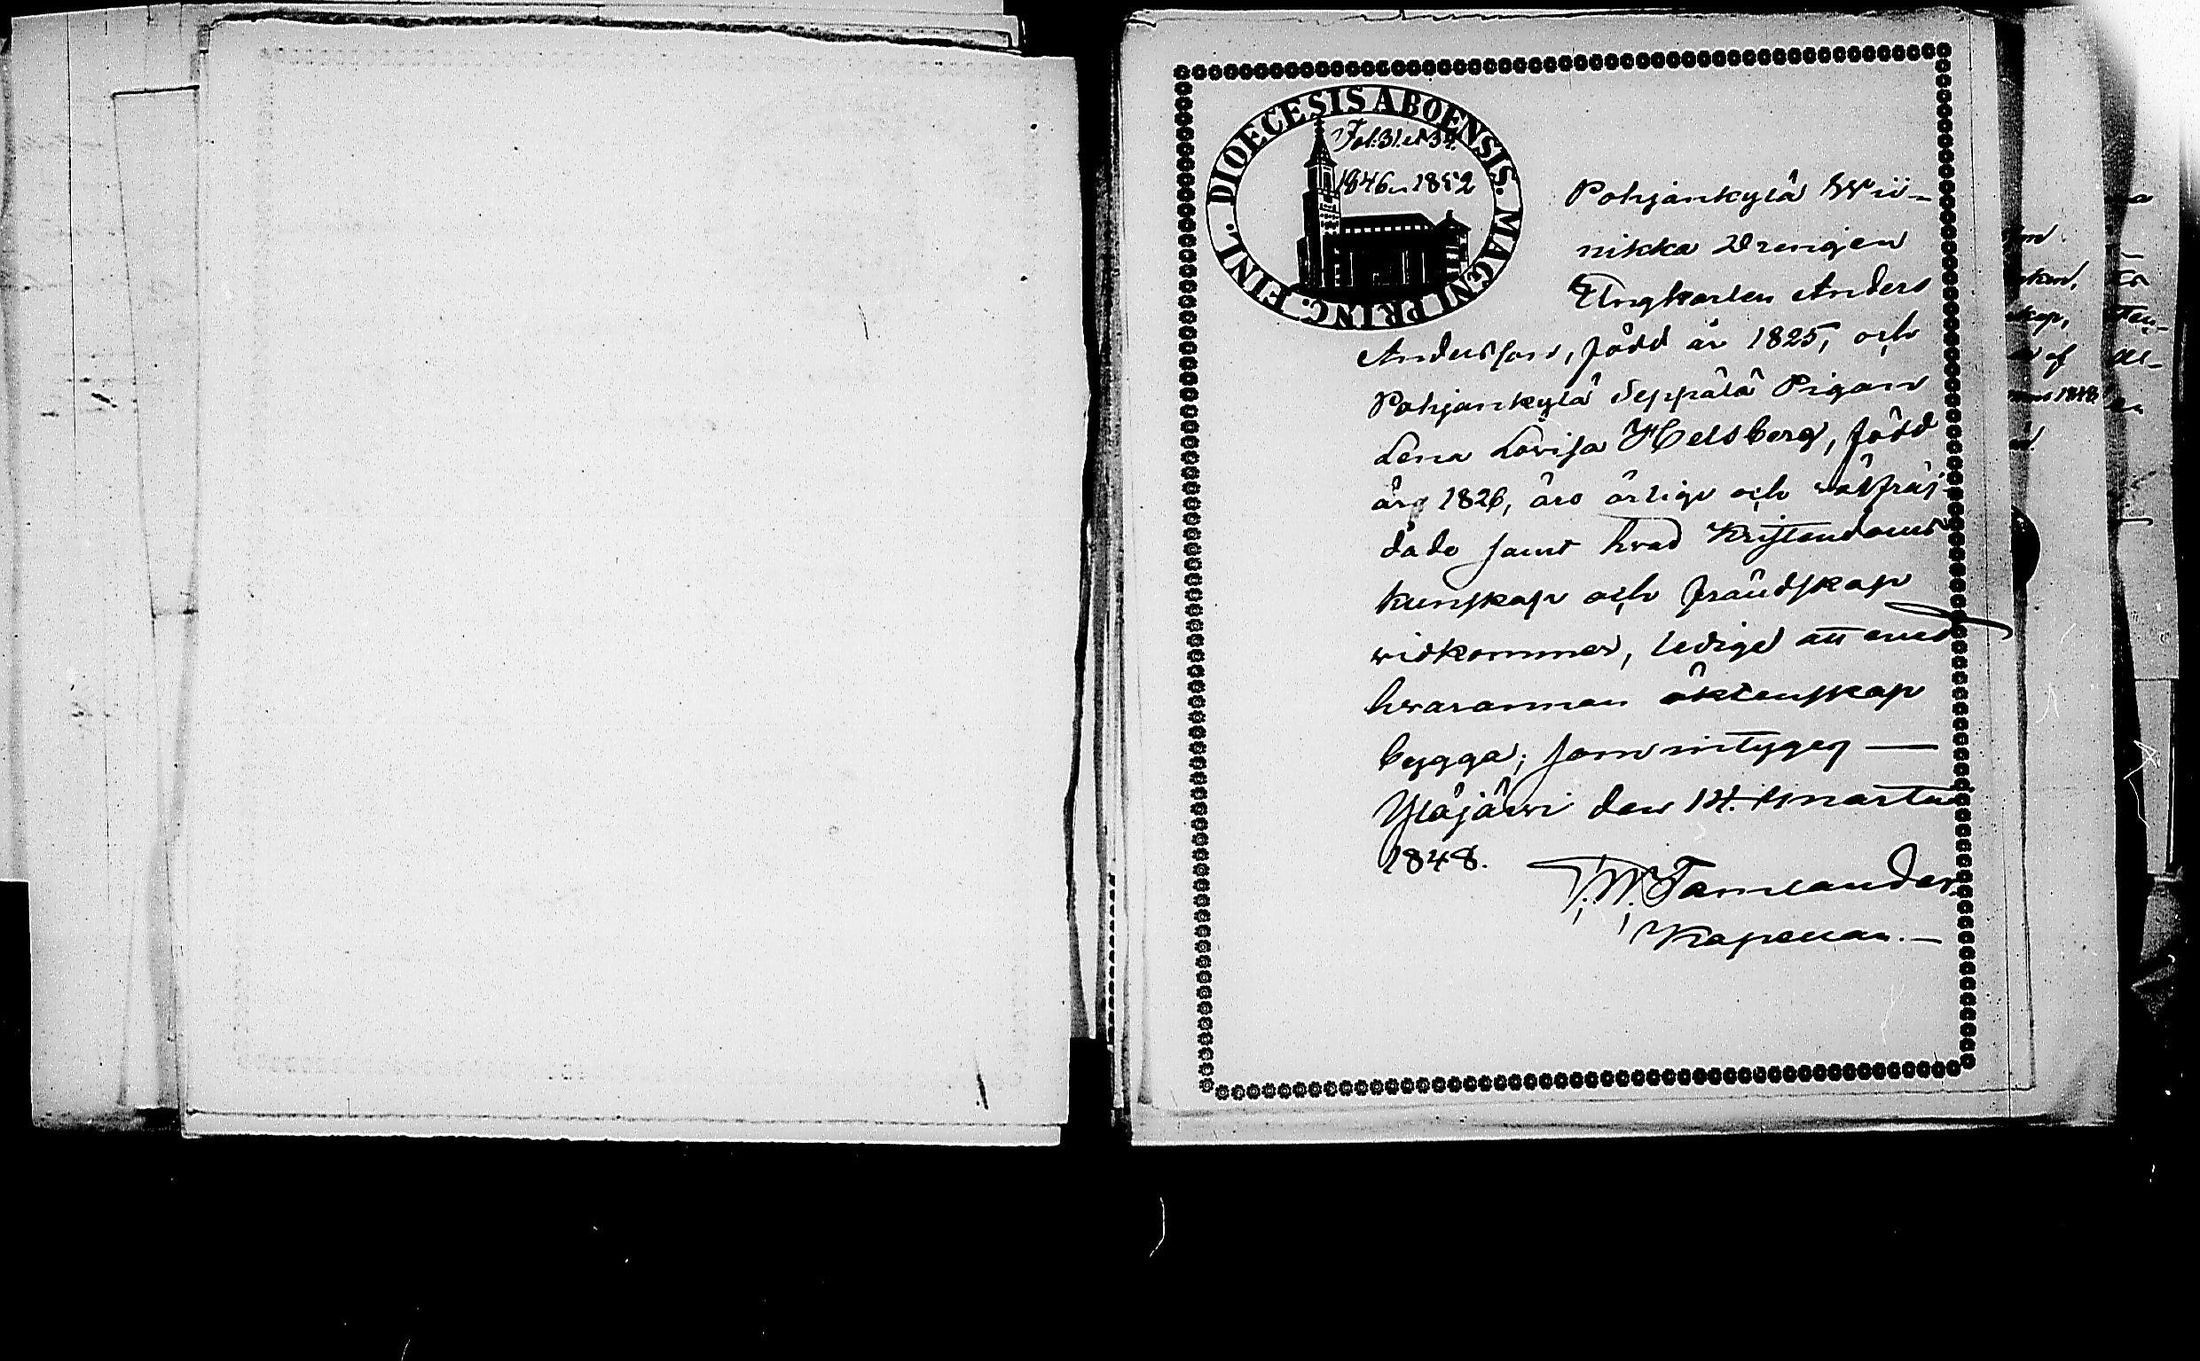 DIOECESIS ABOENSIS. MAGNI PRINC. FINL.
Fol. 31. et 34.
1846–1852
Pohjankylä Wii-
nikka Drengen
Ungkarlen Anders
Andersson, född år 1825, och
Pohjankylä Seppälä Pigan
Lena Lovisa Helsberg, född
år 1826, äro ärlige och wälfräj
dade samt hvad Kristendoms
kunskap och frändskap
widkommer, ledige att med
hvarannan äktenskap
bygga; som intygey —
Ylöjärvi den 14. Martii
1848.
Tamlander,
Kapellan. —
af
1848.